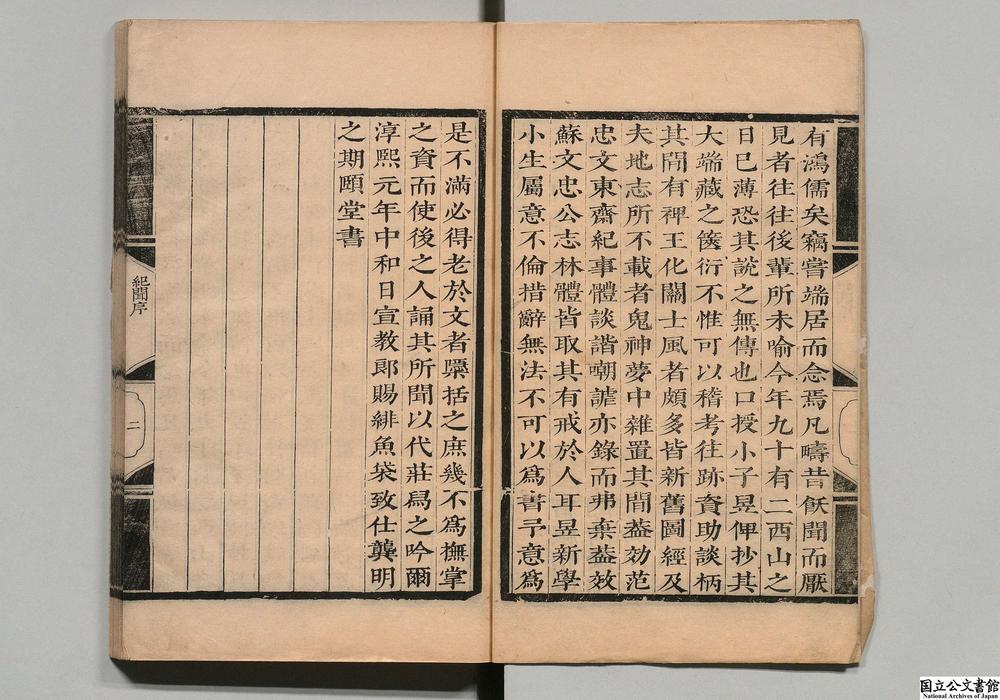 有鴻儒矣竊嘗端居而念焉凡疇昔飫聞而厭
見者往往後輩所未喻今年九十有二西山之
日已薄恐其說之無傳也口授小子昱俾抄其
大端藏之篋衍不惟可以稽考往跡資助談柄
其間有裨王化關士風者頗多皆新舊圖經及
夫地志所不載者鬼神夢中雜置其間葢効范
忠文東齋紀事體談諧嘲謔亦錄而弗棄葢效
蘇文忠公志林體皆取其有戒於人耳昱新學
小生屬意不倫措辭無法不可以爲書予意爲
是不滿必得老於文者檃括之庶幾不爲撫掌
之資而使後之人誦其所聞以代莊舄之吟爾
淳熙元年中和日宣教郎賜緋魚袋致仕龔明
之期頤堂書
紀聞序
二
国立公文書館
National Archives of Japan